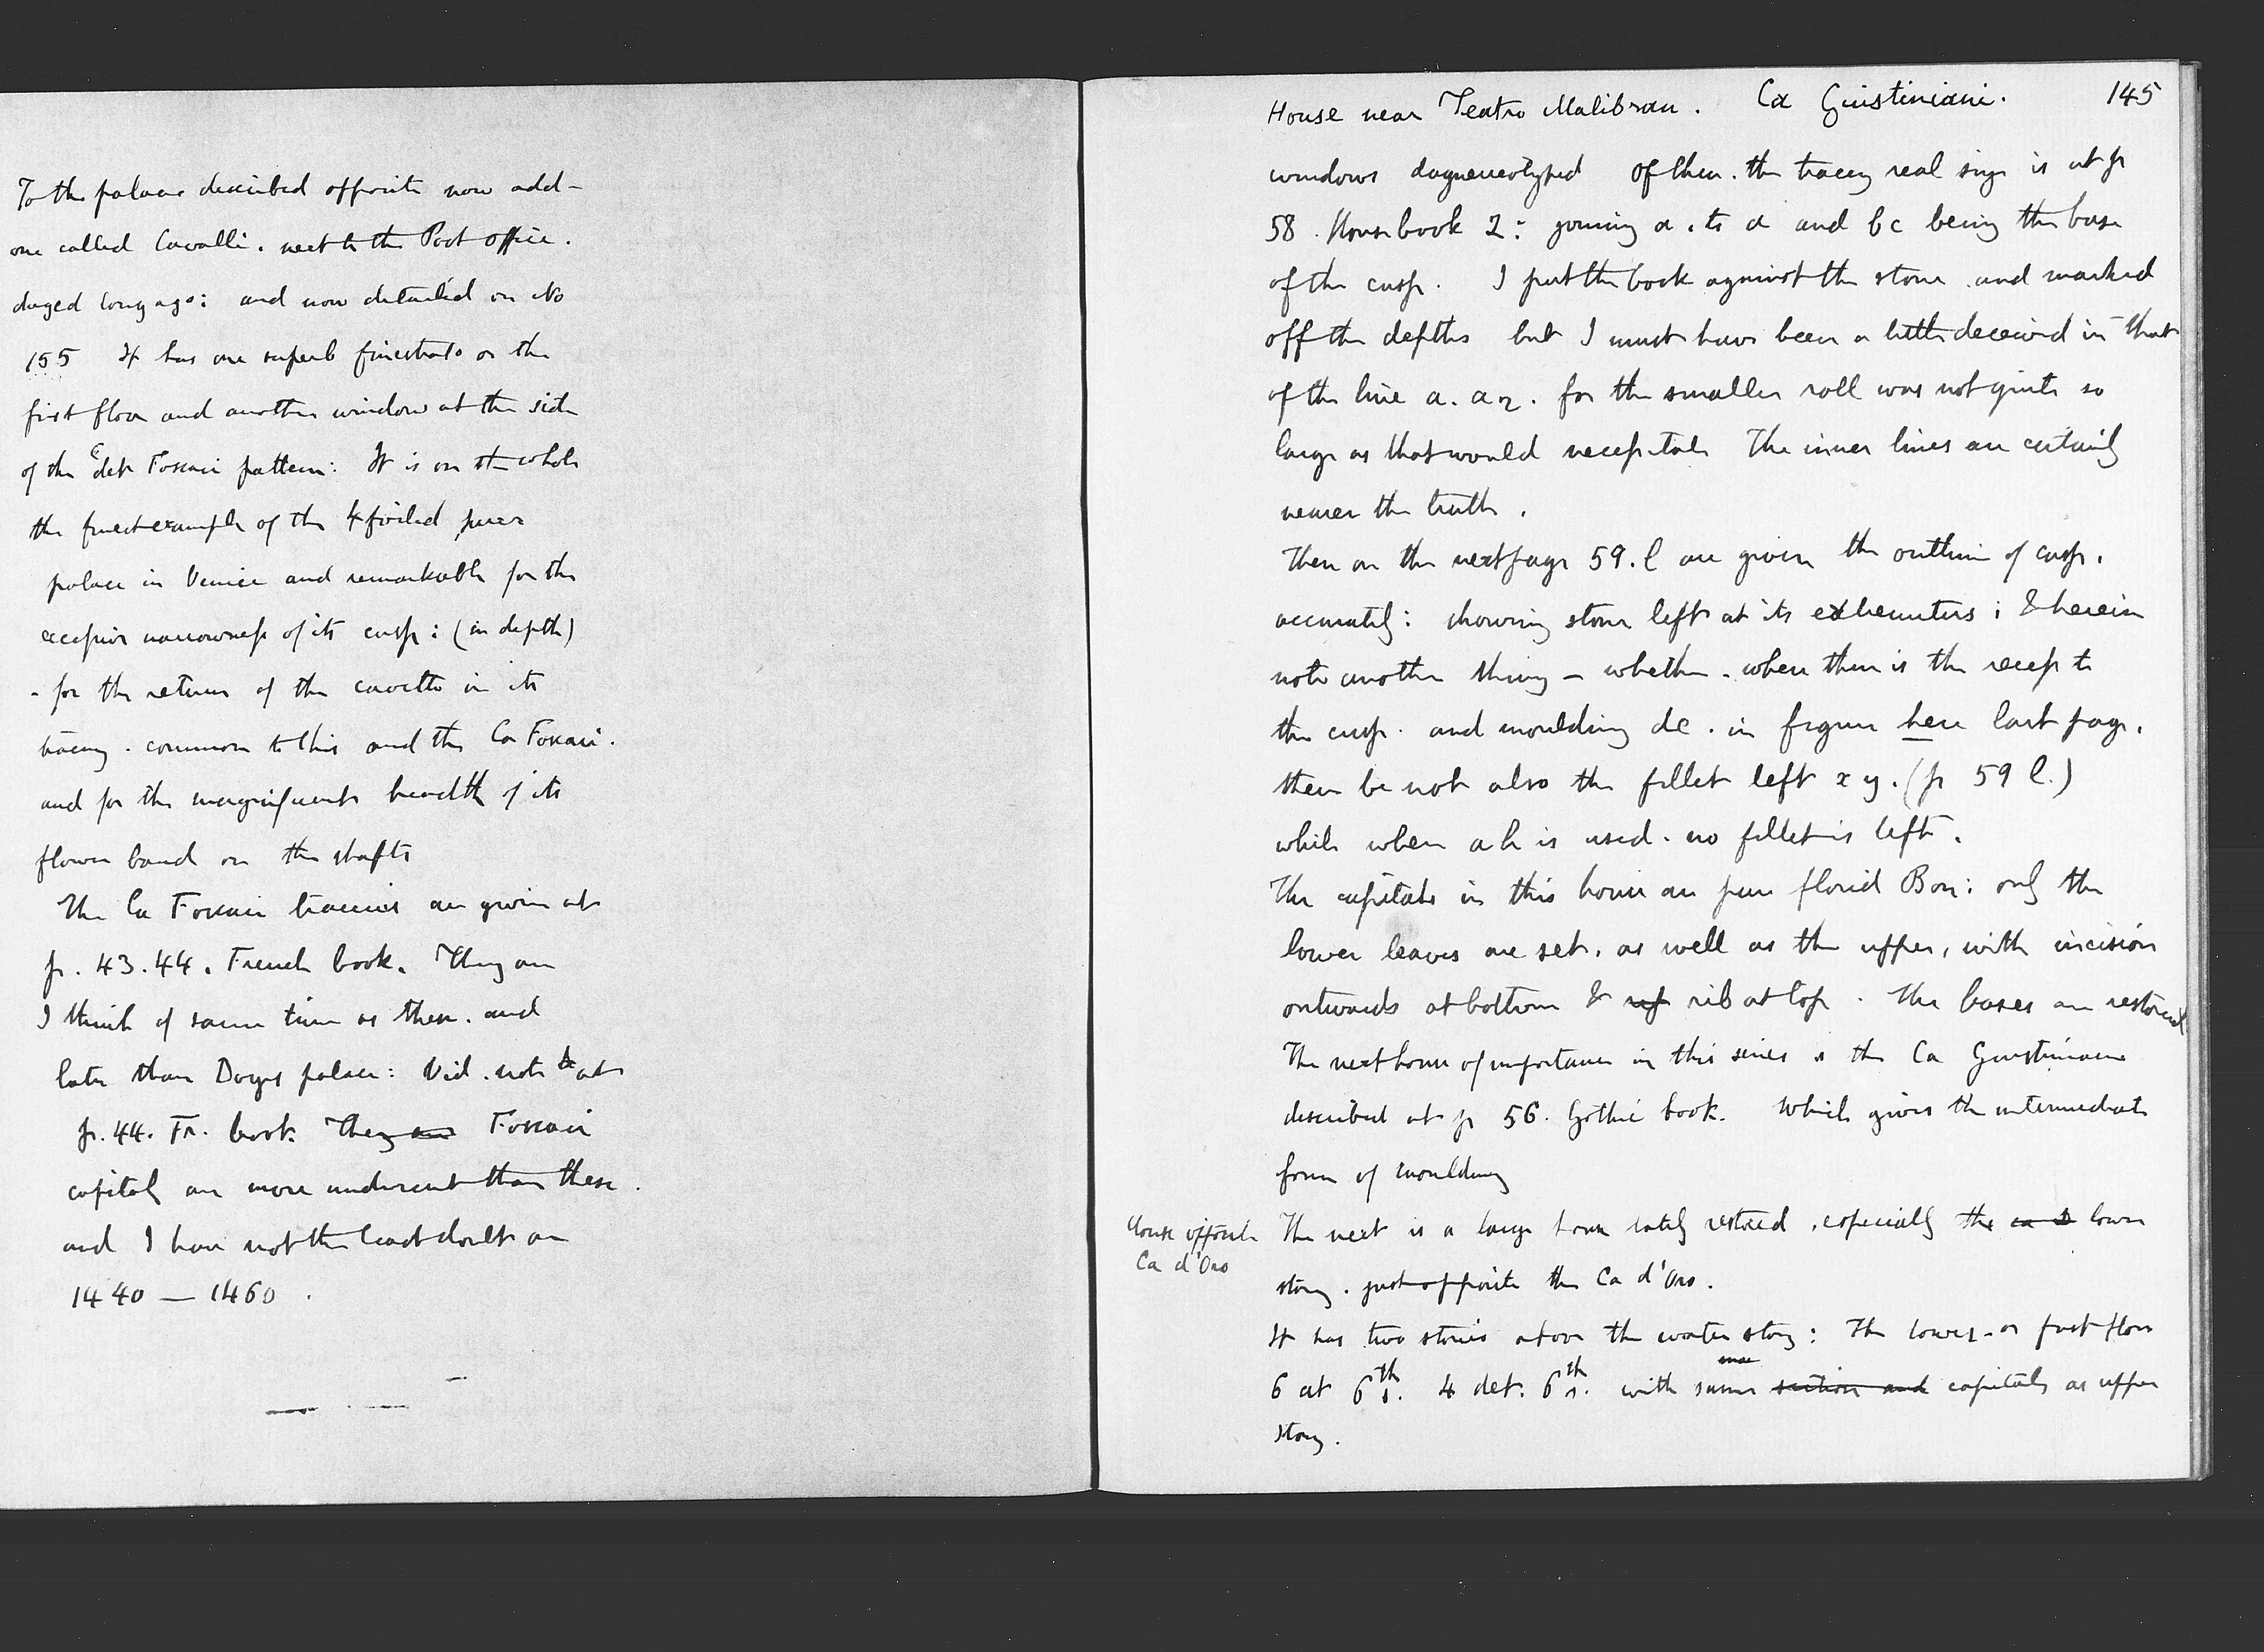 To the palace described opposite now add-
one called Cavalli. next to the Post office.
daged long ago: and now detailed on No
155 It has one superb finestrato on the
first floor and another window at the side
of the det Foscari pattern: It is on the whole
the finest example of the 4 foiled pure
palace in Venice and remarkable for the
excessive narrowness of its cusp: (in depth)
- for the return of the cavetto in its
tracery. common to this and the Ca Foscari.
and for the magnificent breadth of its
flower band on the shafts
The Ca Foscari traceries are given at
p. 43.44. French book. They are
I think of same time as these. and
later than Doges palace: Vid. note at
p. 44. Fr. book They are Foscari
capitals are more undercut than these.
and I have not the least doubt are
1440 — 1460.
House near Teatro Malibran. Ca Giustiniani. 145
windows daguerreotyped of them. the tracery real size is at p
58. House book 2: joining a. to d and bc being the base
of the cusp. I put the book against the stone and marked
off the depths but I must have been a little deceived in that
of the line a. a 2. for the smaller roll was not quite so
large as that would necessitate The inner lines are certainly
nearer the truth.
Then on the next page 59. l are given the outline of cusp.
accurately: showing stone left at its extremities; & herein
note another thing - whether. when there is the recess to
the cusp. and moulding de. in figure here last page.
there be not also the fillet left x y. (p 59 l.)
while when a b is used. no fillet is left.
The capitals in this house are pure florid Bon: only the
lower leaves are set. as well as the upper, with incision
outwards at bottom & rib at top. The bases are restored
The next house of importance in this series is the Ca Giustiniani
described at p 56. Gothic book. Which gives the intermediate
form of moulding
House opposite
Ca d'Oro
The next is a large house lately restored, especially the lower
story. just opposite the Ca d'Oro.
It has two stories above the water story: The lower - or first floor
6 at 6th s. 4 det. 6th s. with same section and capitals as upper
story.